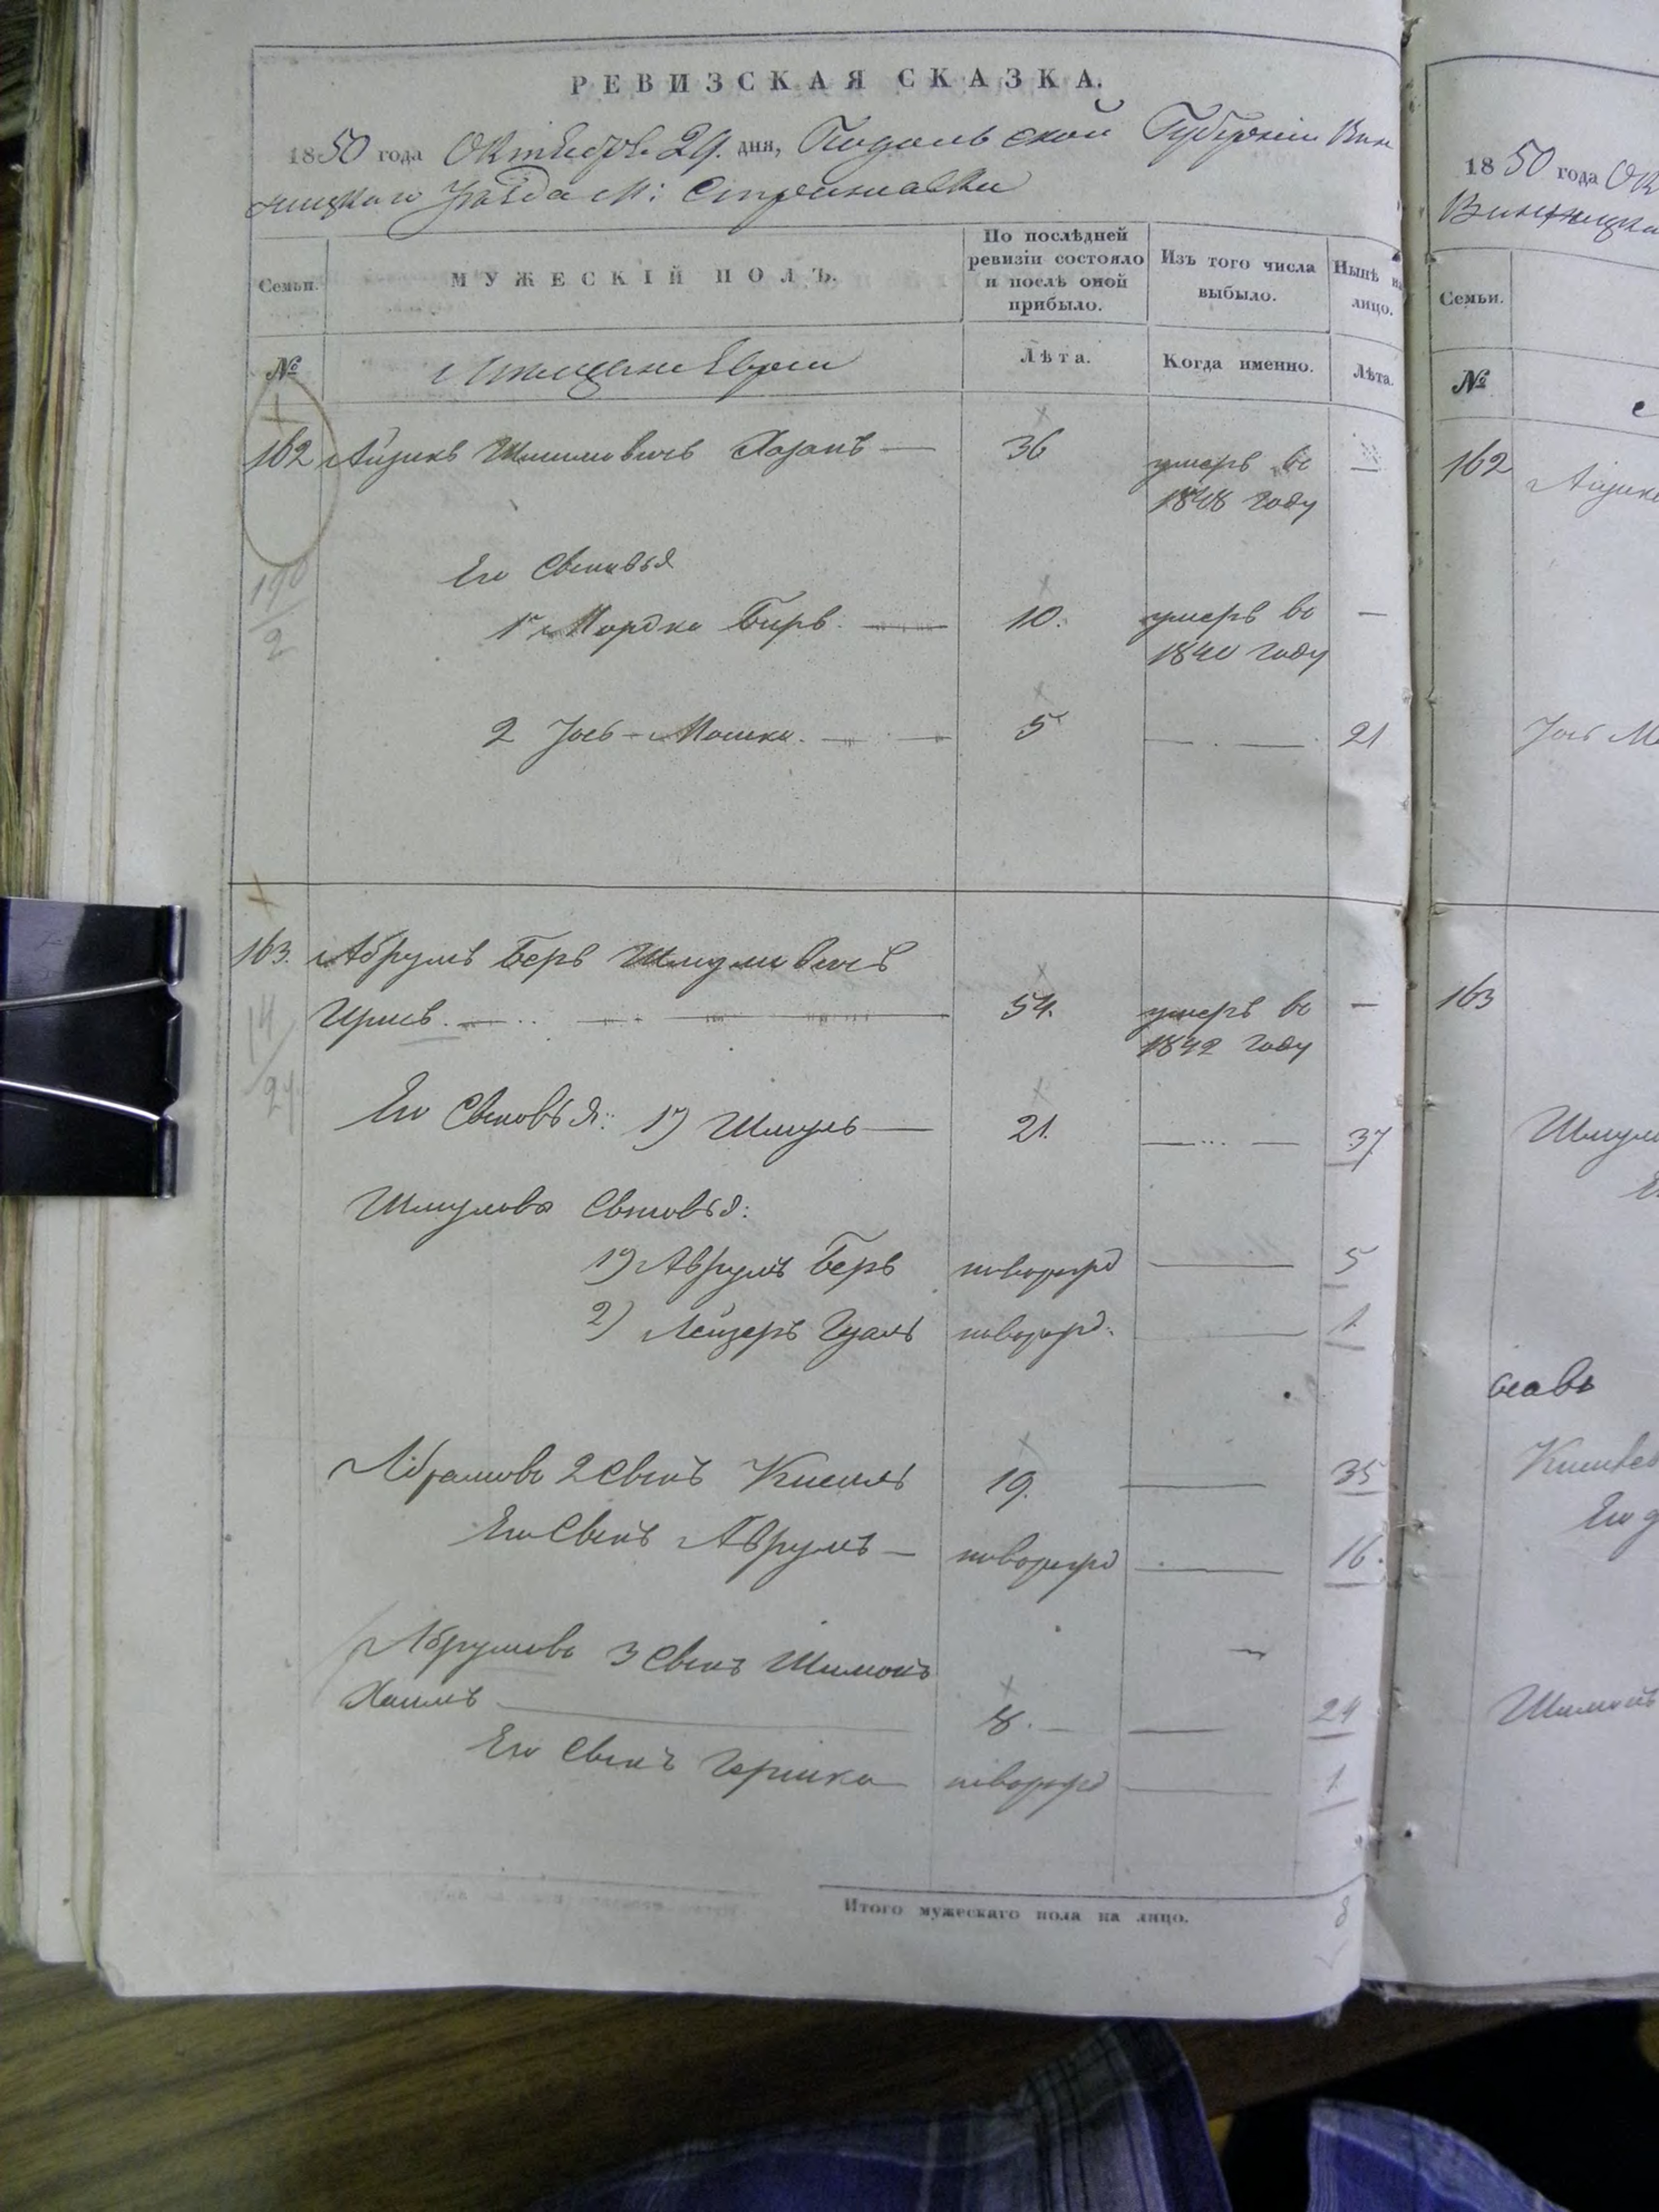 РЕВИЗСКАЯ СКАЗКА.
1850 года Октября 29. дня, Подольской Губерніи Вин
ницкаго Уѣзда М: Стрижавки
Семьи.
МУЖЕСКІЙ ПОЛЪ.
По послѣдней ревизіи состояло и послѣ оной прибыло.
Изъ того числа выбыло.
Нынѣ на лицо.
№
Мѣщане Евреи
Лѣта.
Когда именно.
Лѣта.
162 Айзикъ Шмуловичъ Хазанъ — 36 умеръ въ —
1848 году
190
2
Его Сыновья
1й Мордко Беръ. — 10. умеръ въ —
1840 году
2 Іось-Мошко. — 5 — 21
163. Абрумъ Беръ Шмуловичъ
Ирисъ. — 54. умеръ въ —
1842 году
14
24
Его Сыновья: 1) Шмуль — 21. — 37
Шмулова Сыновья:
1) Аврумъ Беръ новорожд — 5
2) Лейзеръ новорожд. — 1
Абрамовъ 2 Сынъ Кисиль 19. — 35
Его Сынъ Аврумъ — новорожд — 16.
Абрумовъ 3 Сынъ Шимонъ
Хаимъ — 8. — 24
Его Сынъ Гершко новорожд — 1
Итого мужескаго пола на лицо. 8
1850 года Ок
Винницка
Семьи.
№
162 Айзик
Іось Мо
163
Шмул
Его
Шимонъ